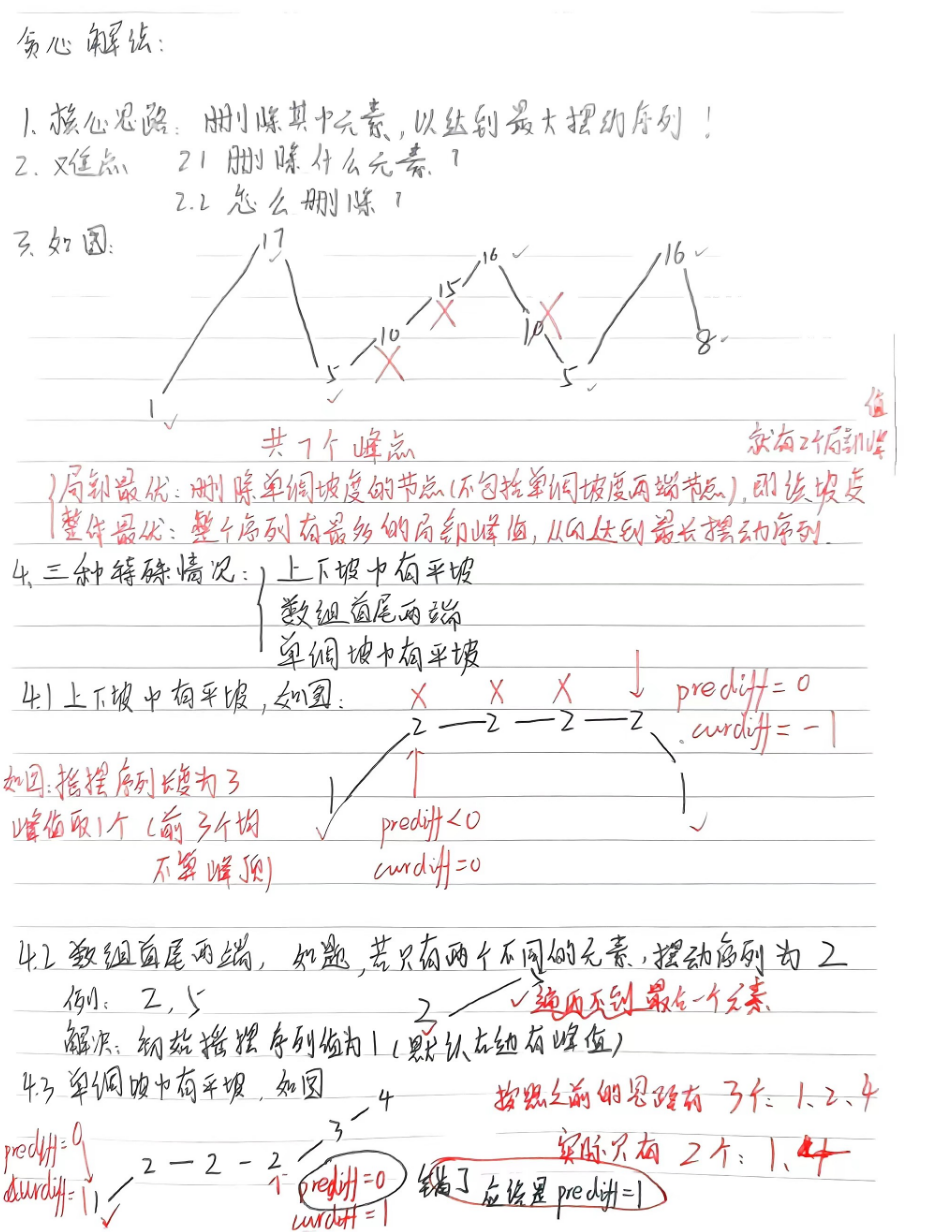 贪心解法:
1、核心思路: 删除其中元素,以达到最大摆动序列!
2. 难点 2.1 删除什么元素?
2.2 怎么删除?
3、如图:
17
16
16
15
10
10
8
5
5
1
共7个峰点
值
就有2个局部峰
局部最优: 删除单调坡度的节点(不包括单调坡度两端节点),即该坡度
整体最优: 整个序列有最多的局部峰值,从而达到最长摆动序列.
4、三种特殊情况: 上下坡中有平坡
数组首尾两端
单调坡中有平坡
4.1 上下坡中有平坡,如图:
prediff=0
curdiff=-1
2 2 2 2
1 1
如图:摇摆序列长度为3
峰值取1个(前3个均
不算峰顶)
prediff<0
curdiff=0
4.2 数组首尾两端, 如题,若只有两个不同的元素,摆动序列为2
例: 2,5
2 5 遍历不到最后一个元素
解决: 初始摇摆序列值为1(默认右边有峰值)
4.3 单调坡中有平坡,如图
按照之前的思路有3个: 1、2、4
实际只有2个: 1、4
1 2 - 2 - 2 3 4
prediff=0
curdiff=1
prediff=0 错了 应该是prediff=1
curdiff=1